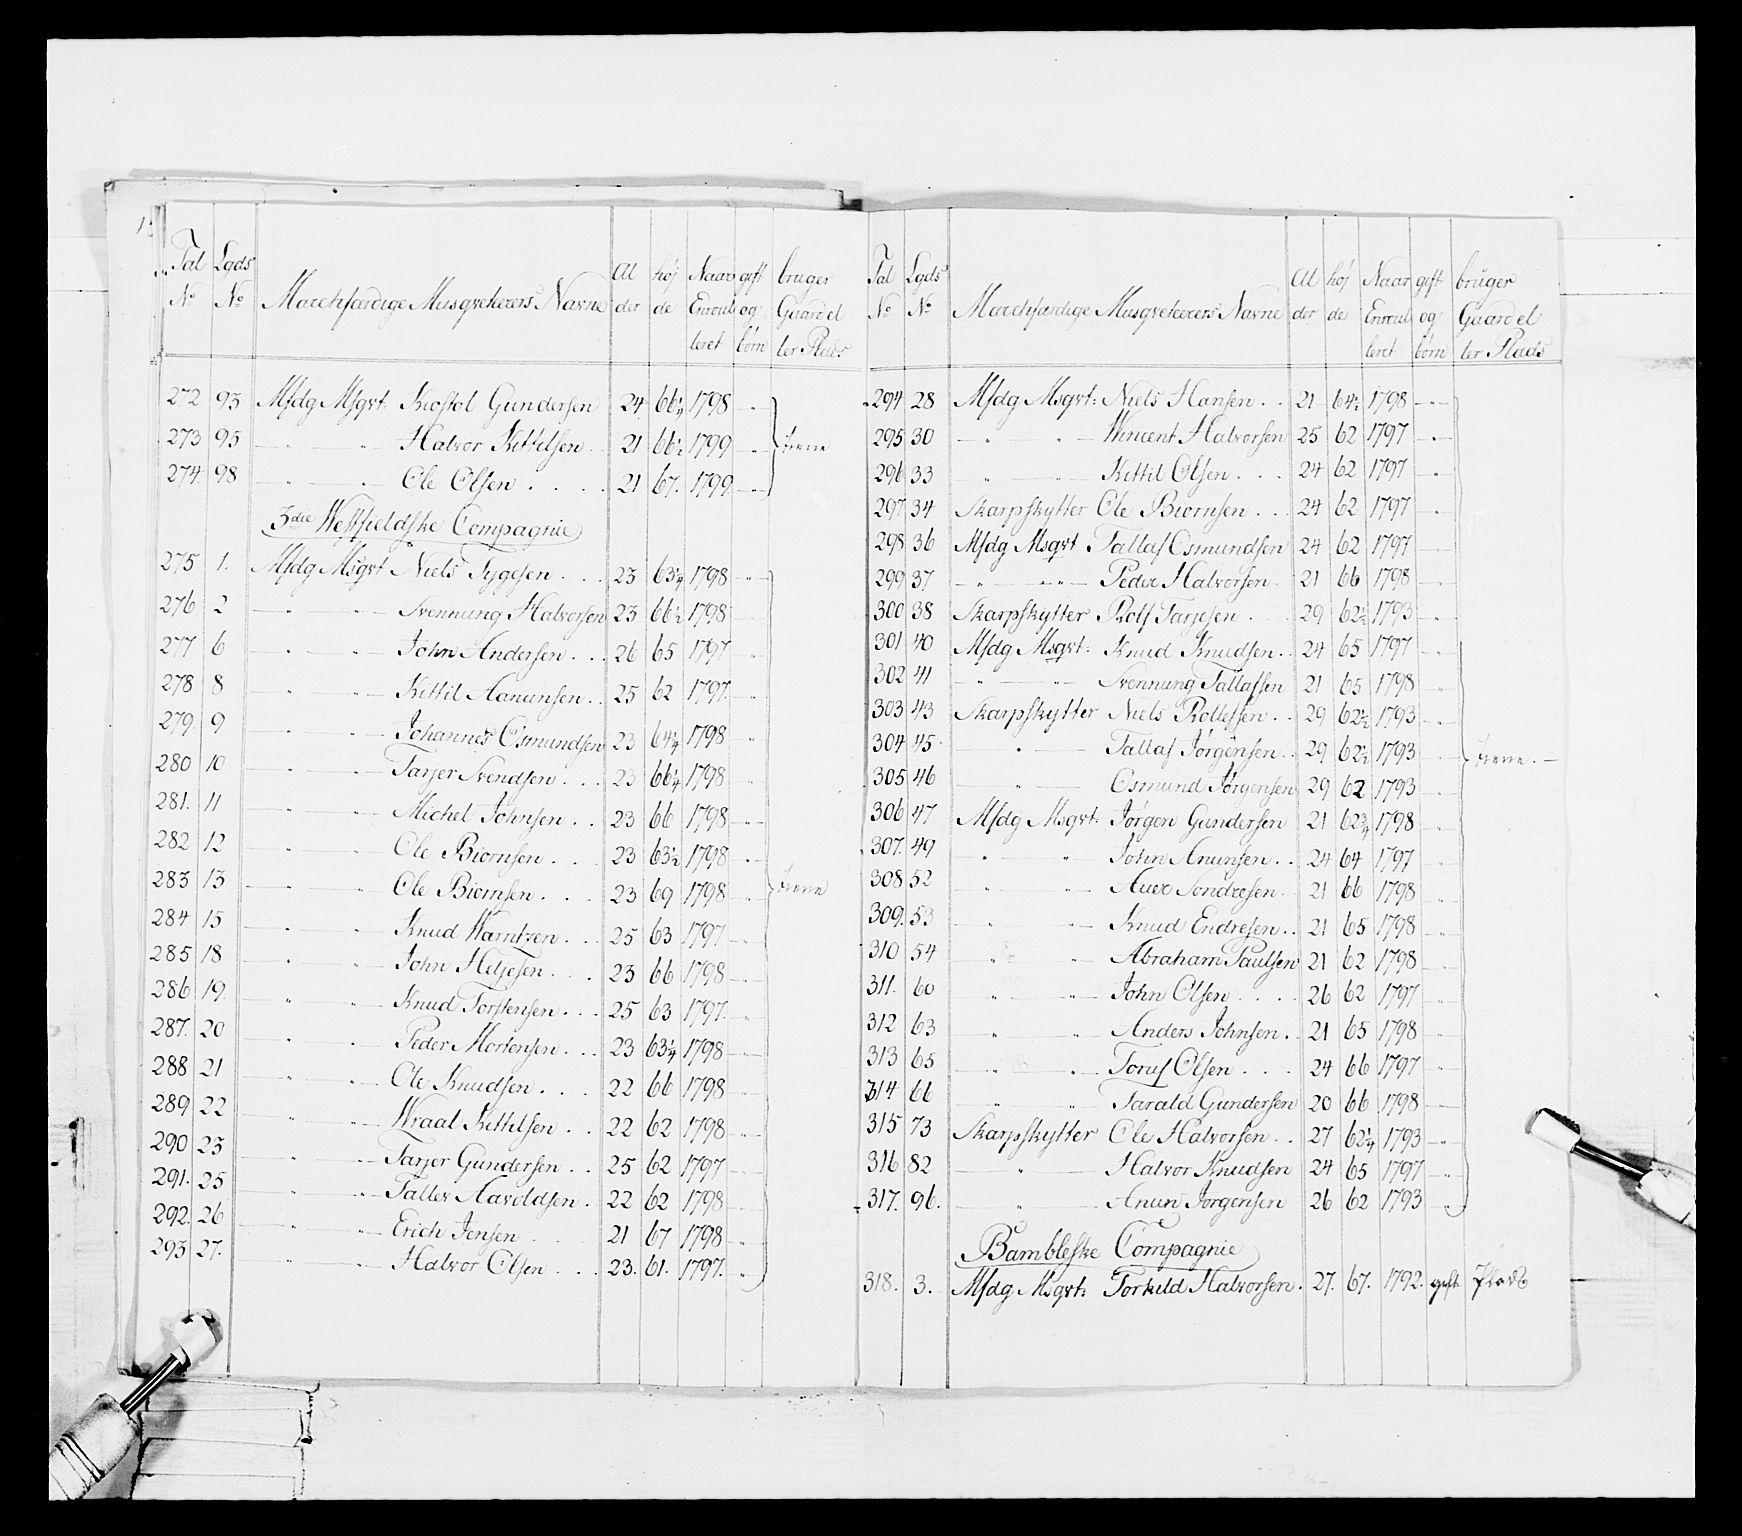 Tal Lgds Al höj Naar gift bruger
No No Marchfærdige Musqveterers Navne der de Enroul og Gaard el
leret börn ler Plads
272 93 Mfdg Msqvt. Kiostol Gundersen 24 66¼ 1798 - " -
273 95 - " - " - Halvor Kittilsen 21 66½ 1799 - " - tiene
274. 98 - " - " - Ole Olsen . . . 21 67. 1799. - " -
3die Westfieldske Compagnie
275 1. Mfdg Msqvt Niels Tygesen . . . 23 63¼ 1798 - " -
276 2 - " - " - Svennung Halvorsen 23 66½ 1798
277 6 - " - " - John Andersen . . . 26 65 1797 "
278 8 - " - " - Kittil Aanunsen . . 25 62 1797. "
279. 9 - " - " - Johannes Osmundsen 23 64¼ 1798 "
280 10 - " - " - Tarjer Svendsen . . . 23 66¼ 1798
281. 11 - " - " - Michel Johnsen . . 23 66 1798 - " -
282 12 - " - " - Ole Biörnsen . . . 23 63½ 1798 - " -
283 13 - " - " - Ole Biörnsen . . . 23 69 1798 - " - tiene
284 15 - " - " - Knud Warntzen . . . 25 63 1797 - " -
285 18 - " - " - John Heljesen . . . 23 66 1798 - " -
286 19. - " - " - Knud Torstensen . . . 25 63 1797. "
287. 20 - " - " - Peder Mortensen . . . 23 63¼ 1798 - " -
288 21 - " - " - Ole Knudsen . . . 22 66 1798 - " -
289 22 - " - " - Wraal Kittilsen . . 22 62 1798 "
290 23 - " - " - Tarjer Gundersen . . 25 62 1797 - " -
291. 25 - " - " - Talles Haroldsen . 22 62 1798 - " -
292. 26 - " - " - Erich Jensen . . . 21 67 1798 - " -
293 27. - " - " - Halvor Olsen . . . 23. 61. 1797. "
Tal Lgds Al höj Naar gift bruger
No No Marchfærdige Musqveterers Navne der de Enroul og Gaard el
leret börn ler Plads
294 28 Mfdg Msqvt: Niels Hansen . . 21 64½ 1798 - " -
295 30 - " - " - Wincent Halvorsen 25 62 1797 - " -
296 33 - " - " - Kittil Olsen . . . 24 62 1797 "
297 34 Skarpskytter Ole Biörnsen . . . 24 62 1797 "
298 36 Mfdg Msqvt Tallaf Osmundsen 24 62 1797
299 37. - " - " - Peder Halvorsen . 21 66 1798 "
300 38 Skarpskytter Rolf Tarjesen . . . 29 62½ 1793 - " -
301 40 Mfdg Msqvt: Knud Knudsen . . 24 65 1797 - " -
302 41 - " - " - Svennung Tallafsen 21 65 1798 "
303 43 Skarpskytter Niels Rollefsen . . 29 62½ 1793 - " -
304 45. - " - Tallaf Jörgensen . . 29 62½ 1793 - " - tiene. -
305 46 - " - Osmund Jörgensen 29 62 1793 - " -
306 47 Mfdg Msqvt: Jörgen Gundersen 21 62¾ 1798 "
307. 49 " " John Anunsen . . 24 64 1797 "
308 52 " " Auer Sondresen . 21 66 1798 "
309. 53 " - " - Knud Endresen . . 21 65 1798 "
310 54 " " Abraham Paulsen 21 62 1798 - " -
311. 60 " - " - John Olsen . . . . 26 62 1797 "
312 63 " - " - Anders Johnsen . 21 65 1798 "
313 65 " - " - Toruf Olsen . . . 24 66 1797 - " -
314 66 " " Tarald Gundersen 20 66 1798 - " -
315 73 Skarpskytter Ole Halvorsen . . 27 62¼ 1793 - " -
316 82 - " - Halvor Knudsen 24 65 1797 "
317. 96. - " - Anun Jörgensen 26 62 1793 "
Bambleske Compagnie
318. 3. Mfdg Msqvt: Torkild Halvorsen . 27. 67. 1792. gift Plads